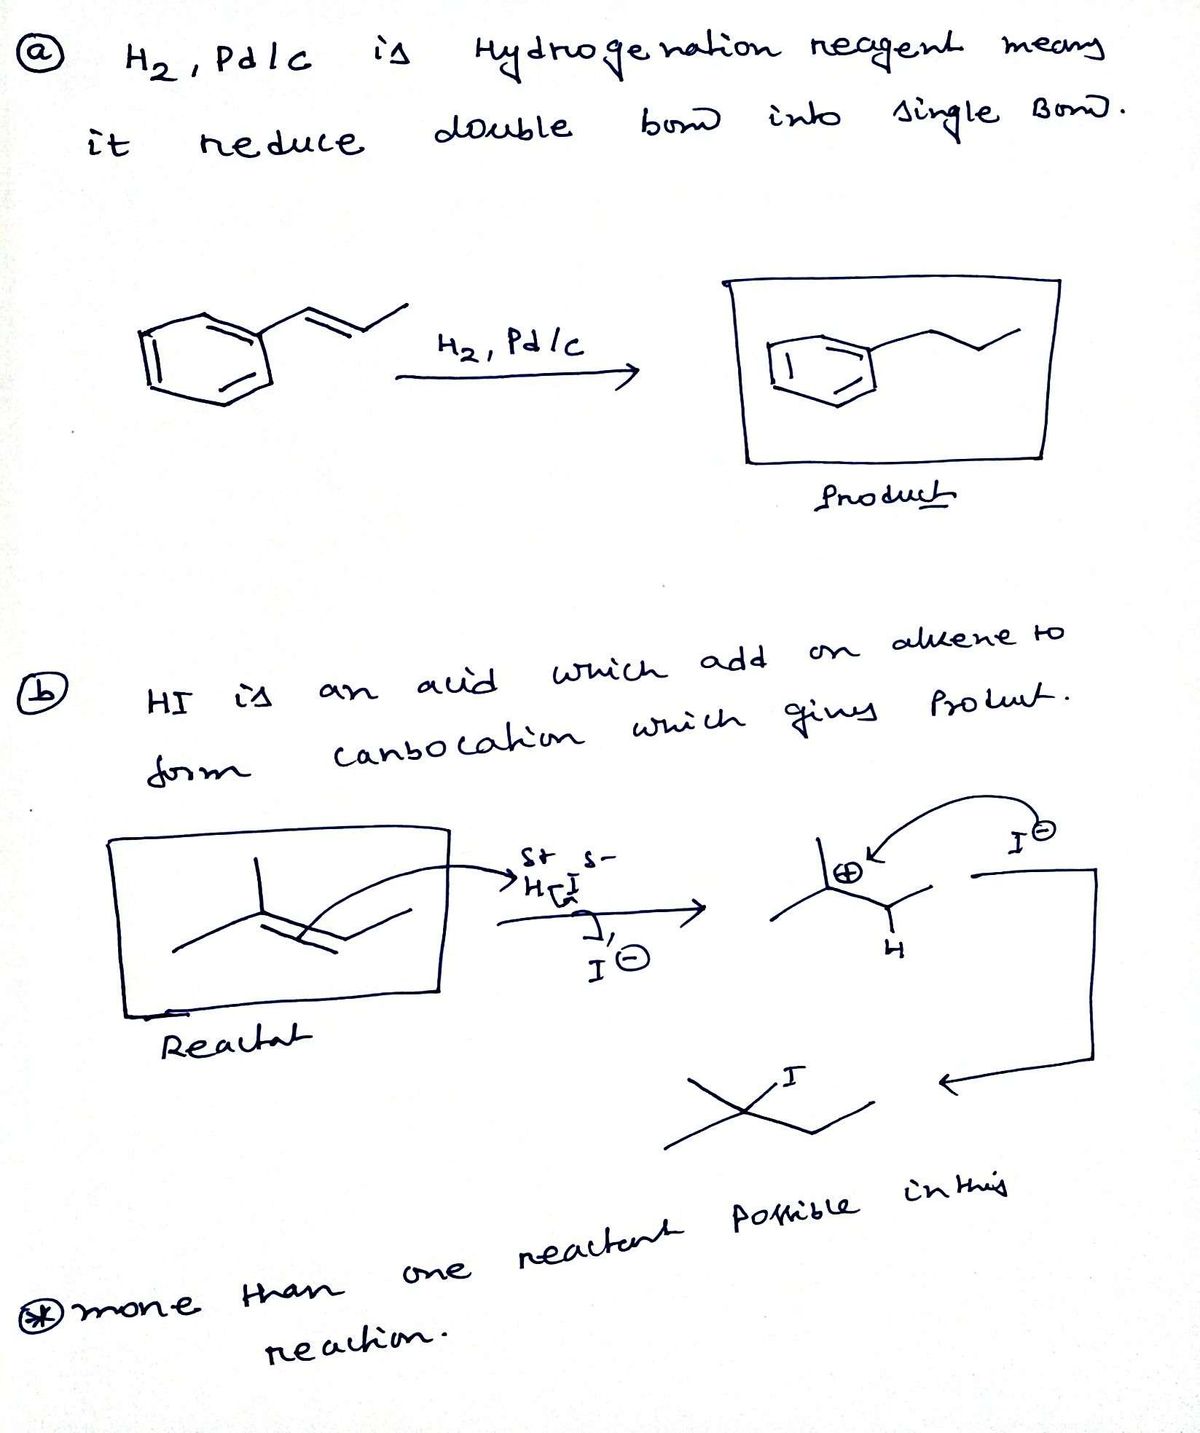 ⓐ H₂, Pd/c is Hydrogenation reagent means
it reduce double bond into single Bond.
H₂, Pd/c
Product
ⓑ HI is an acid which add on alkene to
form carbocation which gives Product.
δ+ δ-
H I
I⊖
⊕
I⊖
H
Reactat
I
⊛ more than one reactant possible in this
reaction.